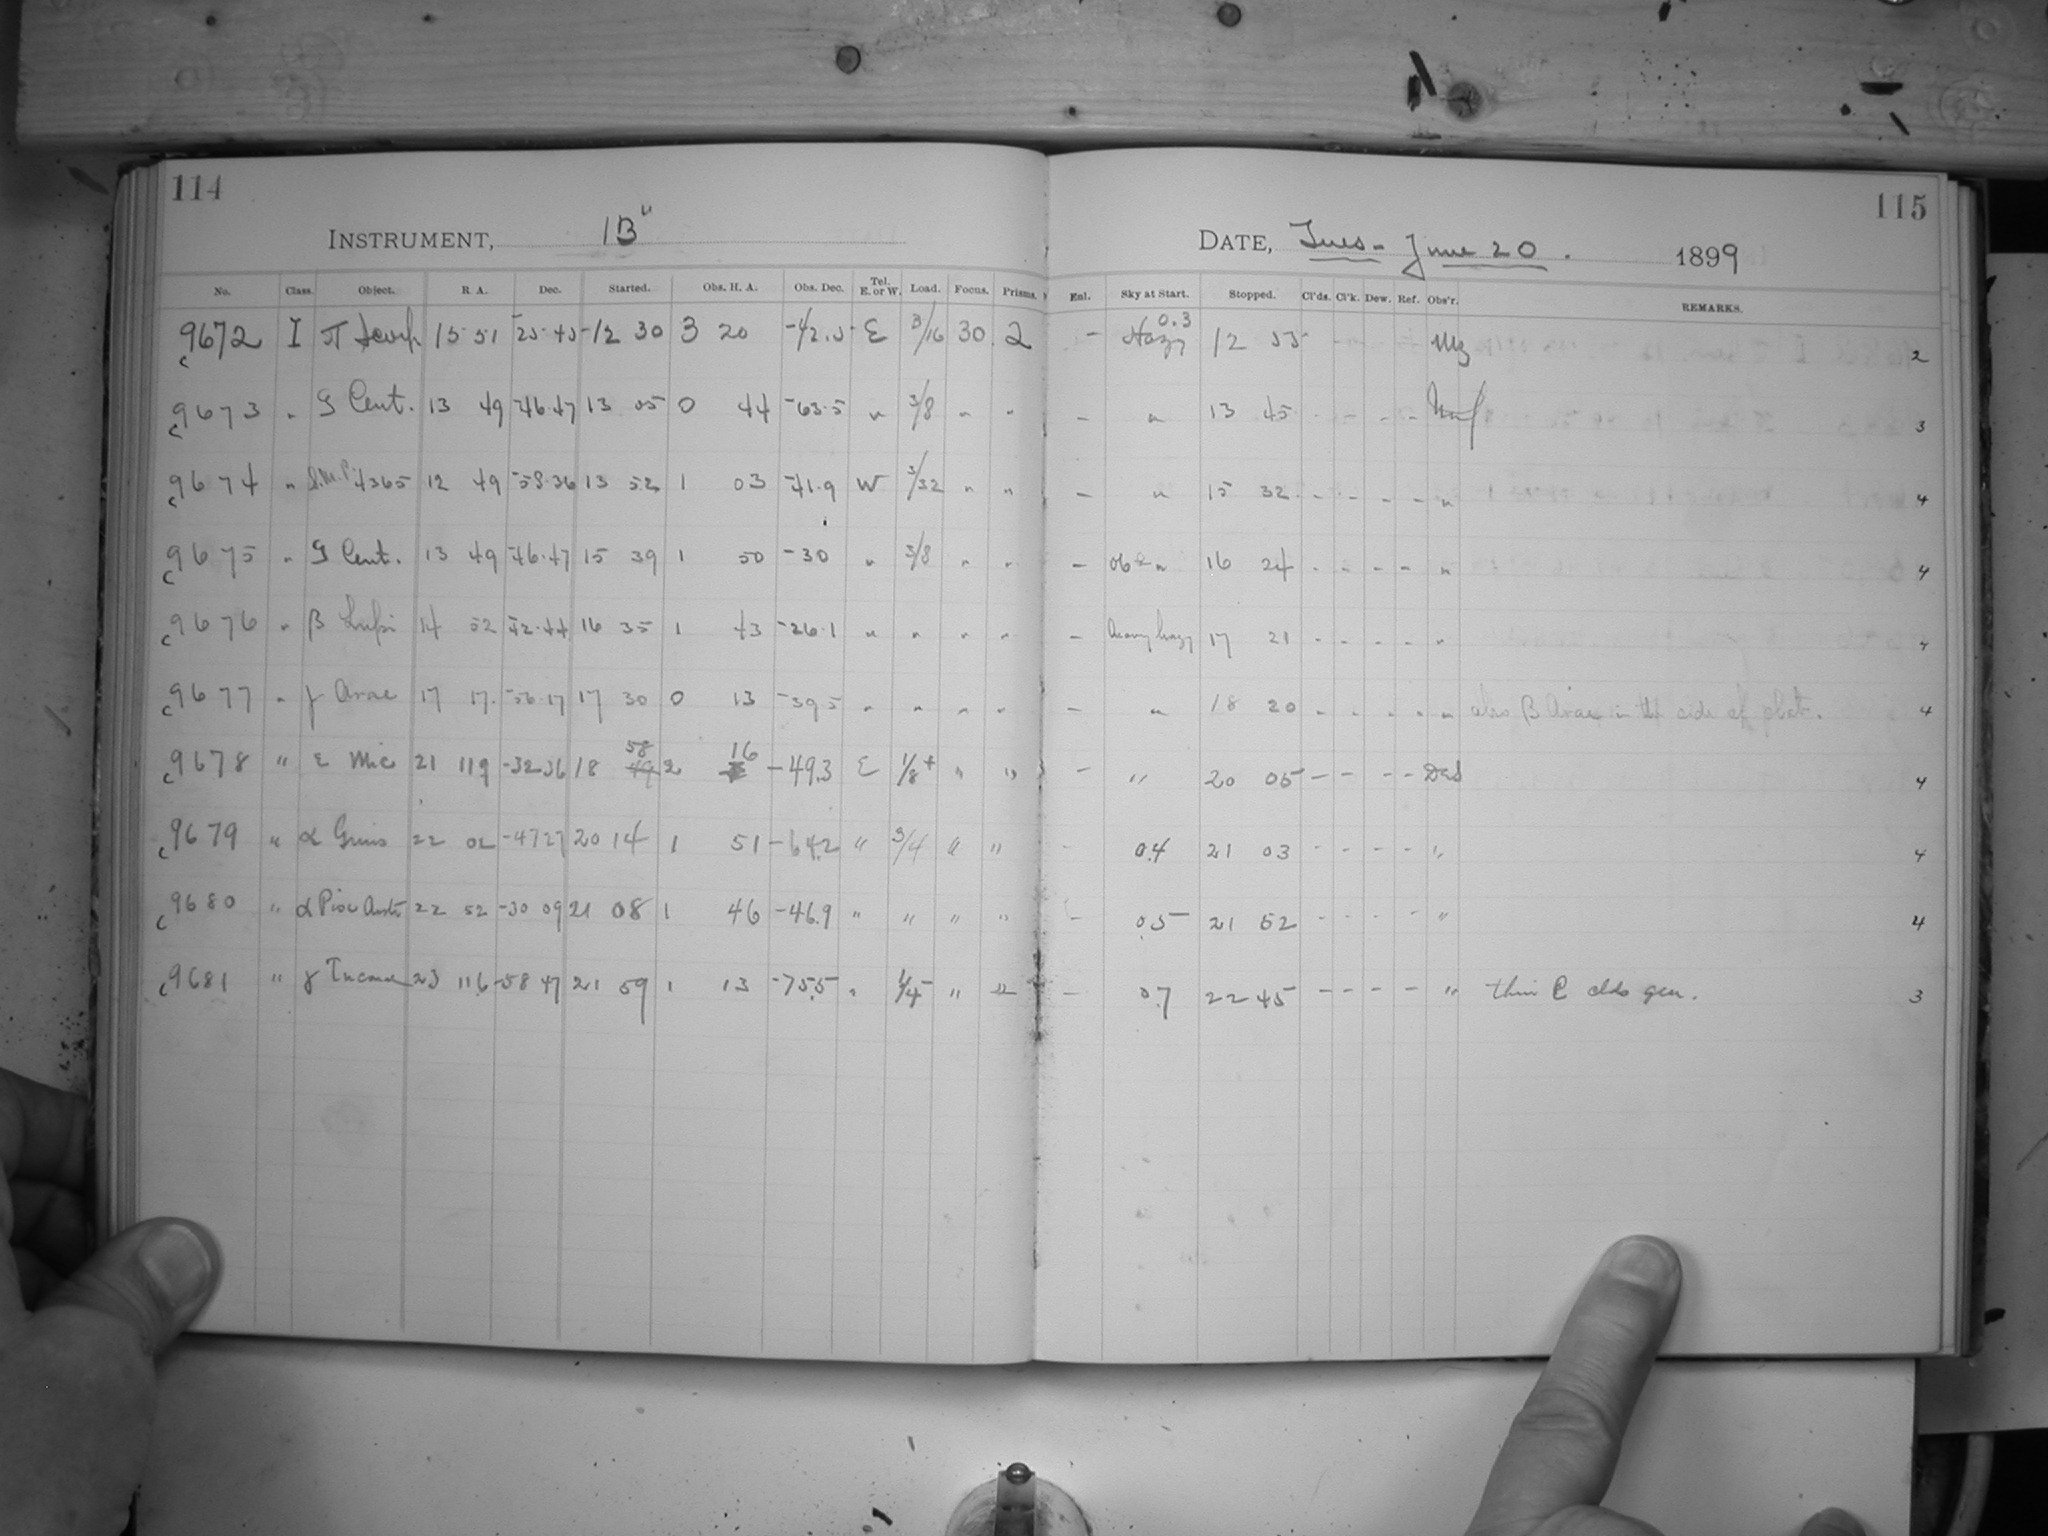 114
INSTRUMENT, 1B"
No. Class. Object. R. A. Dec. Started. Obs. H. A. Obs. Dec. Tel. E. or W. Load. Focus. Prisms.
c9672 I π Scorp 15 51 -25.45 12 30 3 20 -42.5 E 3/16 30 2
c9673 " G Cent. 13 49 -46.47 13 05 0 44 -63.5 " 3/8 " "
c9674 " S.M.P. 4365 12 49 -58.36 13 52 1 03 -41.9 W 3/32 " "
c9675 " G Cent. 13 49 -46.47 15 39 1 50 -30 " 3/8 " "
c9676 " β Lupi 14 52 -42.44 16 35 1 43 -26.1 " " " "
c9677 " γ Arae 17 17 -56.17 17 30 0 13 -39.5 " " " "
c9678 " ε Mic 21 119 -32 36 18 58 2 16 -49.3 E 1/8+ " "
c9679 " α Gruis 22 02 -47 27 20 14 1 51 -64.2 " 3/4 " "
c9680 " α Pisc Austr 22 52 -30 09 21 08 1 46 -46.9 " " " "
c9681 " γ Tucanae 23 116 -58 47 21 59 1 13 -75.5 " 1/4 " "
115
DATE, Tues- June 20. 1899
Enl. Sky at Start. Stopped. Cl'ds. Cl'k. Dew. Ref. Obs'r. REMARKS.
- Hazy 0.3 12 55 - - - - 2
- " 13 45 - - - - 3
- " 15 32 - - - - " 4
- " 16 24 - - - - " 4
- heavy hazy 17 21 - - - - " 4
- " 18 20 - - - - " also β Arae in the side of plate. 4
- " 20 05 - - - - 4
- 0.4 21 03 - - - - " 4
- 0.5 21 52 - - - - " 4
- 0.7 22 45 - - - - " thin C clds gen. 3